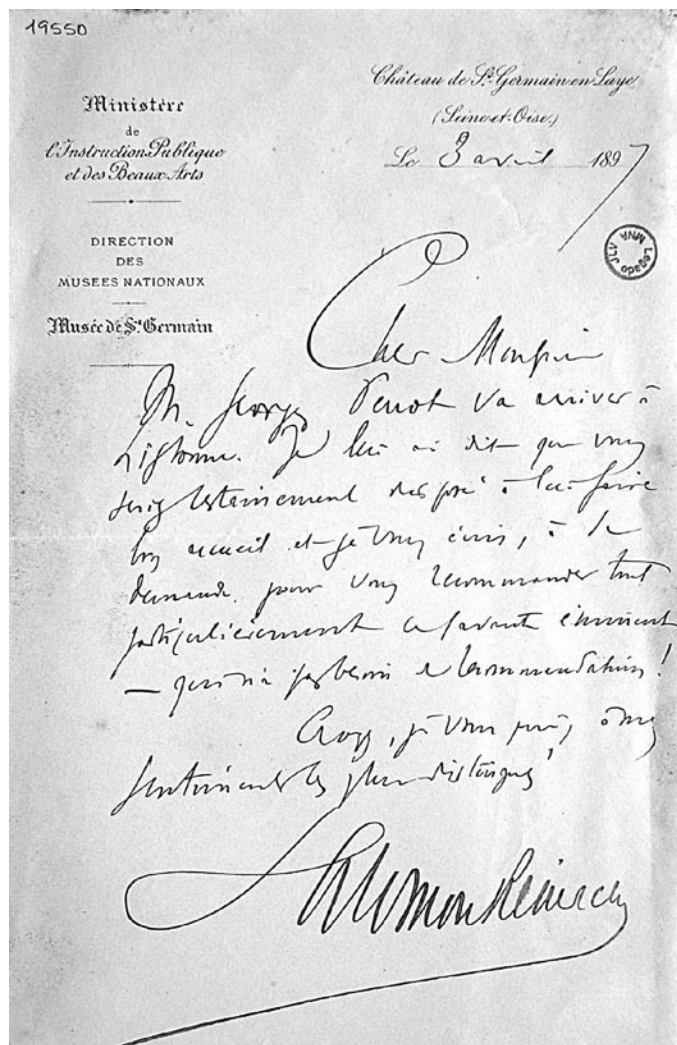 19550
Ministère
de
l'Instruction Publique
et des Beaux Arts
DIRECTION
DES
MUSÉES NATIONAUX
Musée de St Germain
Château de St Germain en Laye
(Seine-et-Oise.)
Le 3 avril 1897
Legado JLV
MNA
Cher Monsieur
M. Georges Perrot va arriver à
Lisbonne. Je lui ai dit que vous
seriez certainement disposé à lui faire
bon accueil et je vous écris, à sa
demande, pour vous recommander tout
particulièrement ce savant éminent
— qui n'a pas besoin de recommandation!
Croyez, je vous prie, à mes
sentiments les plus distingués
Salomon Reinach